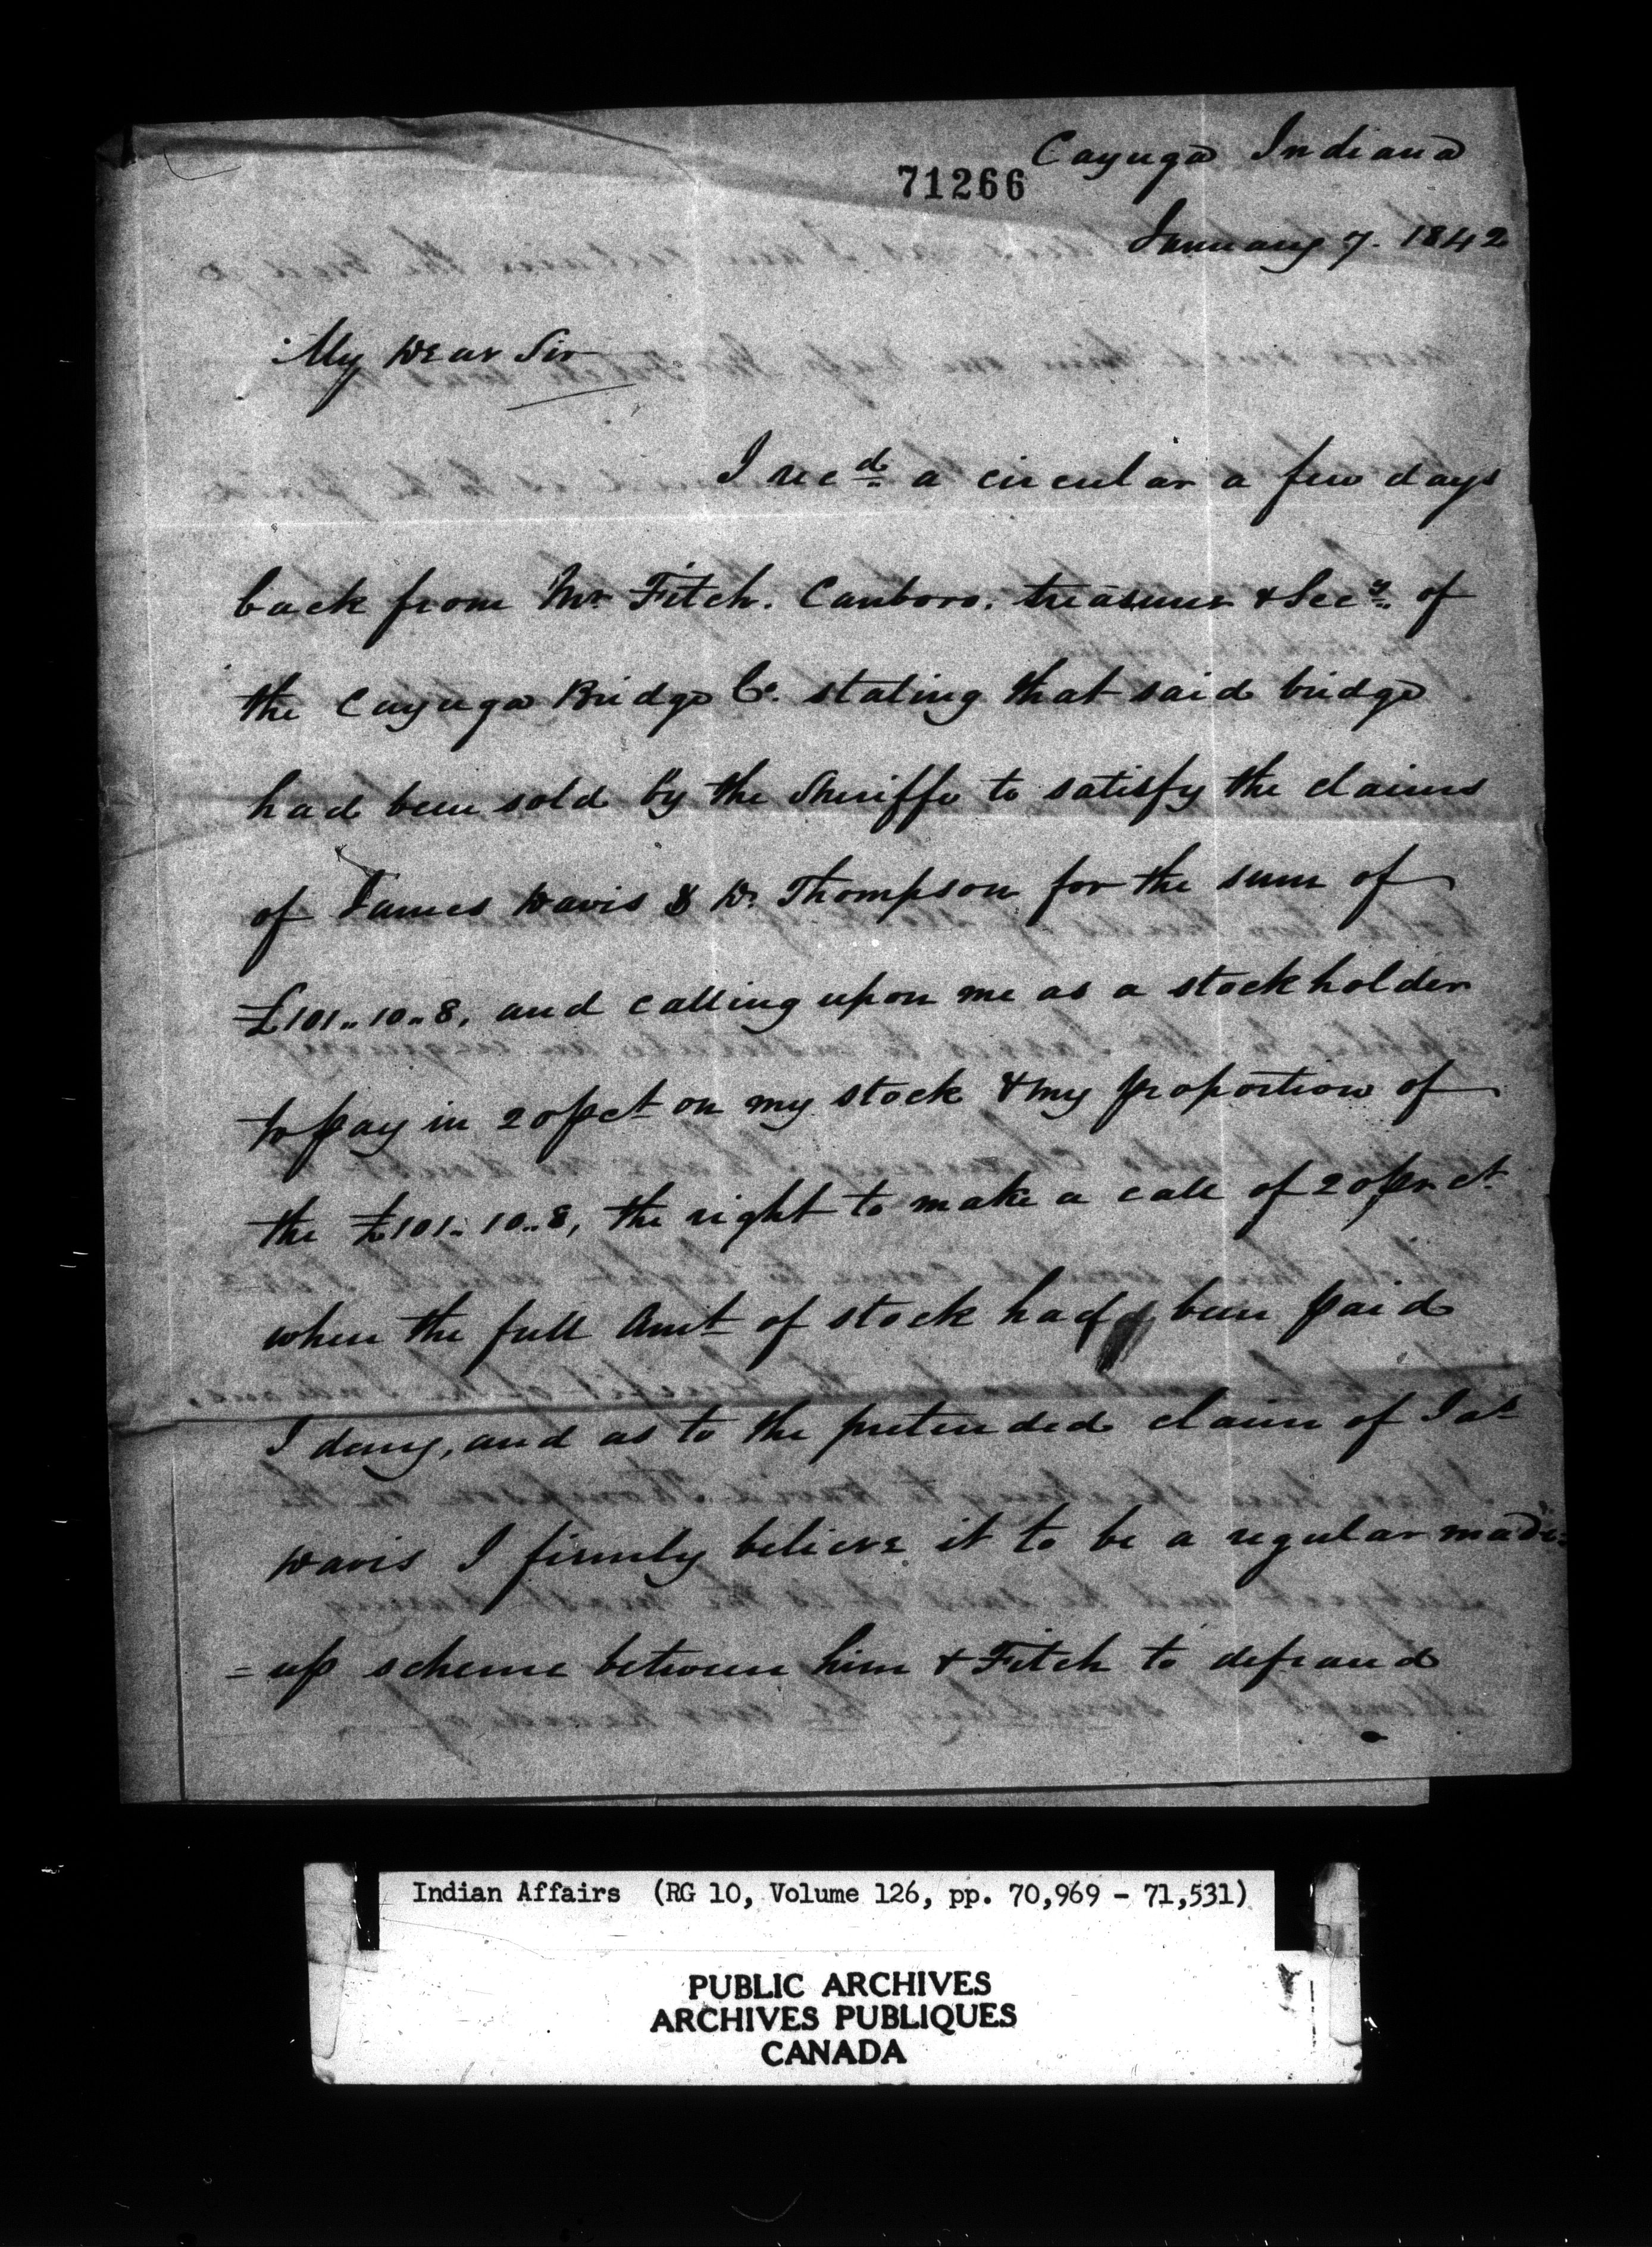 Cayuga Indiana
71266
January 7. 1842
My Dear Sir
I recd a circular a few days
back from Mr Fitch. Canboro. treasurer & Secy. of
the Cayuga Bridge Co. stating that said bridge
had been sold by the Sheriffe to satisfy the claims
of James Davis & D. Thompson for the sum of
£101..10..8, and calling upon me as a stockholder
to pay in 20 pct on my stock & my proportion of
the £101..10..8, the right to make a call of 20 pr ct
when the full Amt of stock had been paid
I deny, and as to the pretended claim of Jas
Davis I firmly believe it to be a regular made=
=up scheme between him & Fitch to defraud
Indian Affairs (RG 10, Volume 126, pp. 70,969 - 71,531)
PUBLIC ARCHIVES
ARCHIVES PUBLIQUES
CANADA